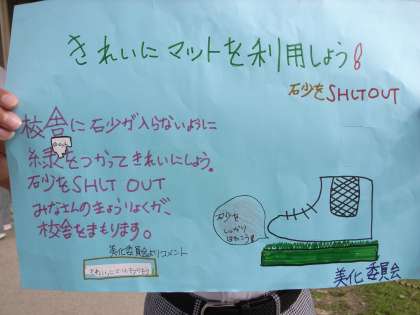 きれいにマットを利用しよう!
石少をSHLTOUT
校舎に石少が入らないように
緑をつかってきれいにしよう。
石少をSHLT OUT
みなさんのきょうりょくが、
校舎をまもります。
美化委員会よりコメント
石少を
しっかり
はらおう!
美化委員会